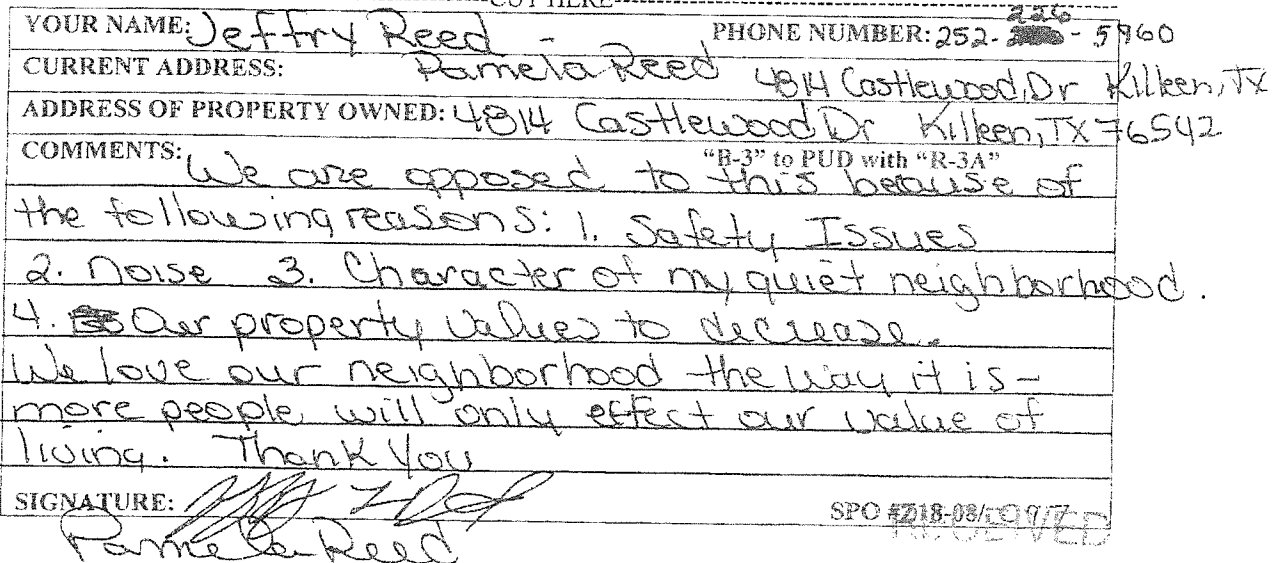 CUT HERE
YOUR NAME: Jeffry Reed - PHONE NUMBER: 252-226-5960
CURRENT ADDRESS: Pamela Reed 4814 Castlewood, Dr Killeen, TX
ADDRESS OF PROPERTY OWNED: 4814 Castlewood Dr Killeen, TX 76542
COMMENTS: "B-3" to PUD with "R-3A"
We are opposed to this because of
the following reasons: 1. Safety Issues
2. Noise 3. Character of my quiet neighborhood.
4. Our property values to decrease.
We love our neighborhood the way it is -
more people will only effect our value of
living. Thank You
SIGNATURE: SPO #Z18-08/
RECEIVED
Pamela Reed